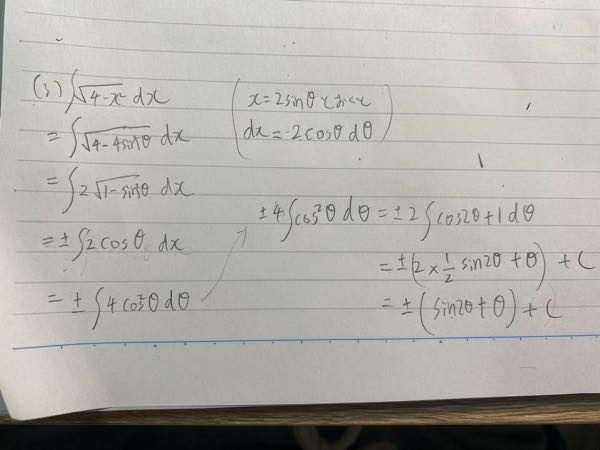 (3) ∫√4-x² dx
(x=2sinθとおくと
dx=-2cosθdθ)
=∫√4-4sin²θ dx
=∫2√1-sin²θ dx
=±∫2cosθ dx
=±∫4cos²θdθ
±4∫cos²θdθ=±2∫cos2θ+1dθ
=±(2×1/2 sin2θ+θ)+C
=±(sin2θ+θ)+C